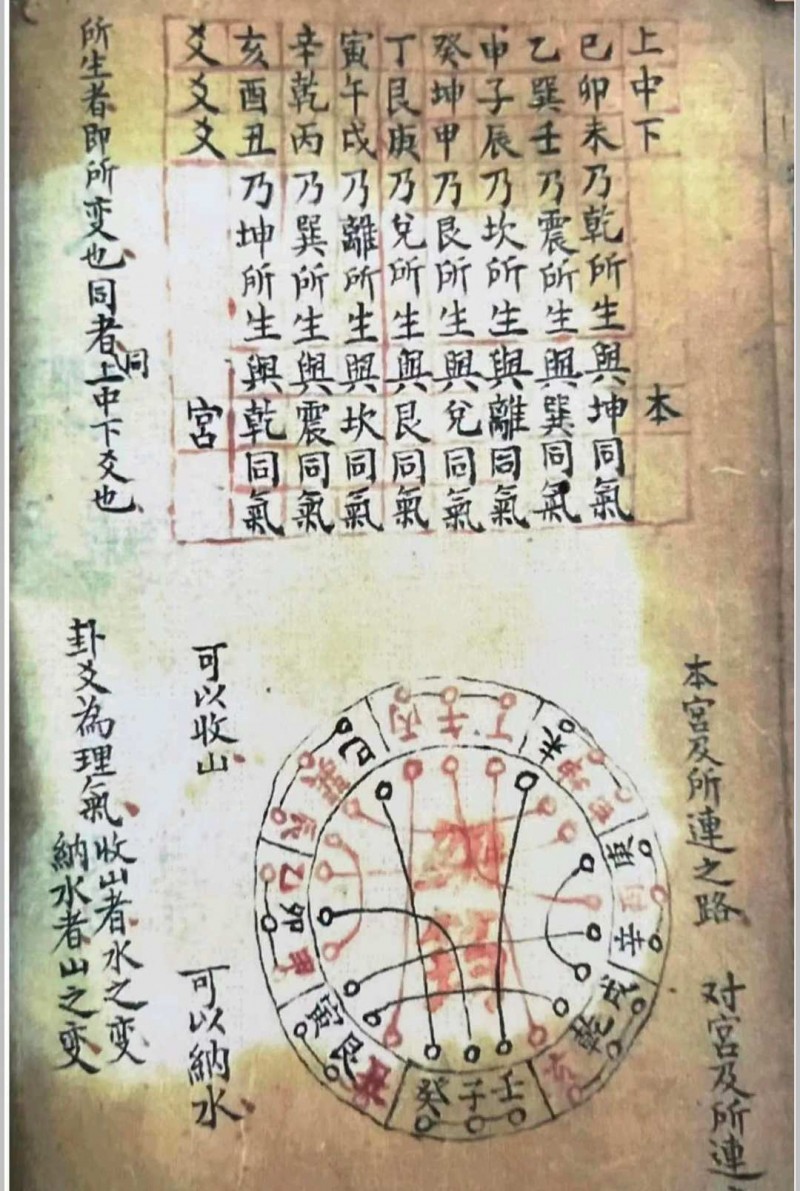 上中下 本
巳卯未乃乾所生與坤同氣
乙巽壬乃震所生與巽同氣
申子辰乃坎所生與離同氣
癸坤甲乃艮所生與兌同氣
丁艮庚乃兌所生與艮同氣
寅午戌乃離所生與坎同氣
辛乾丙乃巽所生與震同氣
亥酉丑乃坤所生與乾同氣
爻爻爻 宮
所生者即所变也同者上中下爻也
同
本宮及所連之路
对宮及所連
丙午丁
未坤申
庚酉辛
戌乾亥
壬子癸
丑艮寅
甲卯乙
辰巽巳
可以收山
可以納水
卦爻為理氣
收山者水之变
納水者山之变